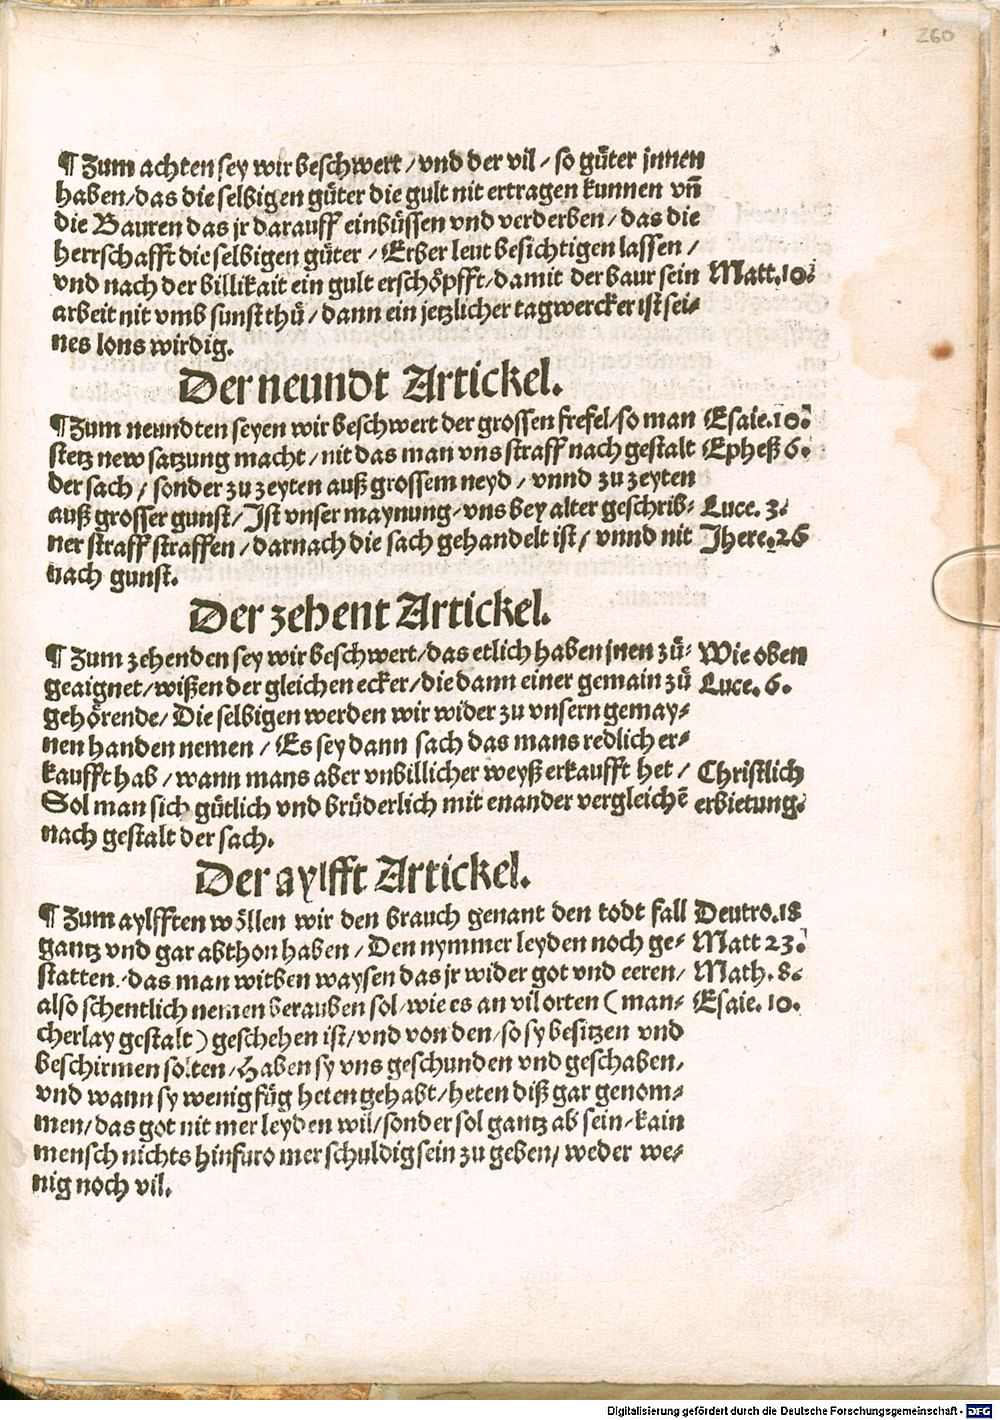 260
¶ Zum achten sey wir beschwert / vnd der vil / so gůter jnnen
haben / das die selbigen gůter die gult nit ertragen kunnen vn̄
die Bauren das jr darauff einbůssen vnd verderben / das die
herrschafft die selbigen gůter / Erber leut besichtigen lassen /
vnd nach der billikait ein gult erschöpfft / damit der baur sein Matt. 10.
arbeit nit vmb sunst thů / dann ein jetzlicher tagwercker ist sei⸗
nes lons wirdig.
Der neundt Artickel.
¶ Zum neundten seyen wir beschwert der grossen frefel / so man Esaie. 10.
stetz new satzung macht / nit das man vns straff nach gestalt Epheß 6.
der sach / sonder zu zeyten auß grossem neyd / vnnd zu zeyten
auß grosser gunst / Ist vnser maynung / vns bey alter geschrib⸗ Luce. 3.
ner straff straffen / darnach die sach gehandelt ist / vnnd nit Jhere. 26
nach gunst.
Der zehent Artickel.
¶ Zum zehenden sey wir beschwert / das etlich haben jnen zů⸗ Wie oben
geaignet / wißen der gleichen ecker / die dann einer gemain zů Luce. 6.
gehörende / Die selbigen werden wir wider zu vnsern gemay⸗
nen handen nemen / Es sey dann sach das mans redlich er⸗
kaufft hab / wann mans aber vnbillicher weyß erkaufft het / Christlich
Sol man sich gůtlich vnd brůderlich mit enander vergleichē erbietung.
nach gestalt der sach.
Der aylfft Artickel.
¶ Zum aylfften wöllen wir den brauch genant den todt fall Deutro. 18
gantz vnd gar abthon haben / Den nymmer leyden noch ge⸗ Matt 23.
statten / das man witben waysen das jr wider got vnd eeren / Math. 8.
also schentlich nemen berauben sol / wie es an vil orten ( man⸗ Esaie. 10.
cherlay gestalt ) geschehen ist / vnd von den / so sy besitzen vnd
beschirmen solten / Haben sy vns geschunden vnd geschaben /
vnd wann sy wenig fůg heten gehabt / heten diß gar genom⸗
men / das got nit mer leyden wil / sonder sol gantz ab sein / kain
mensch nichts hinfuro mer schuldig sein zu geben / weder we⸗
nig noch vil.
Digitalisierung gefördert durch die Deutsche Forschungsgemeinschaft - DFG